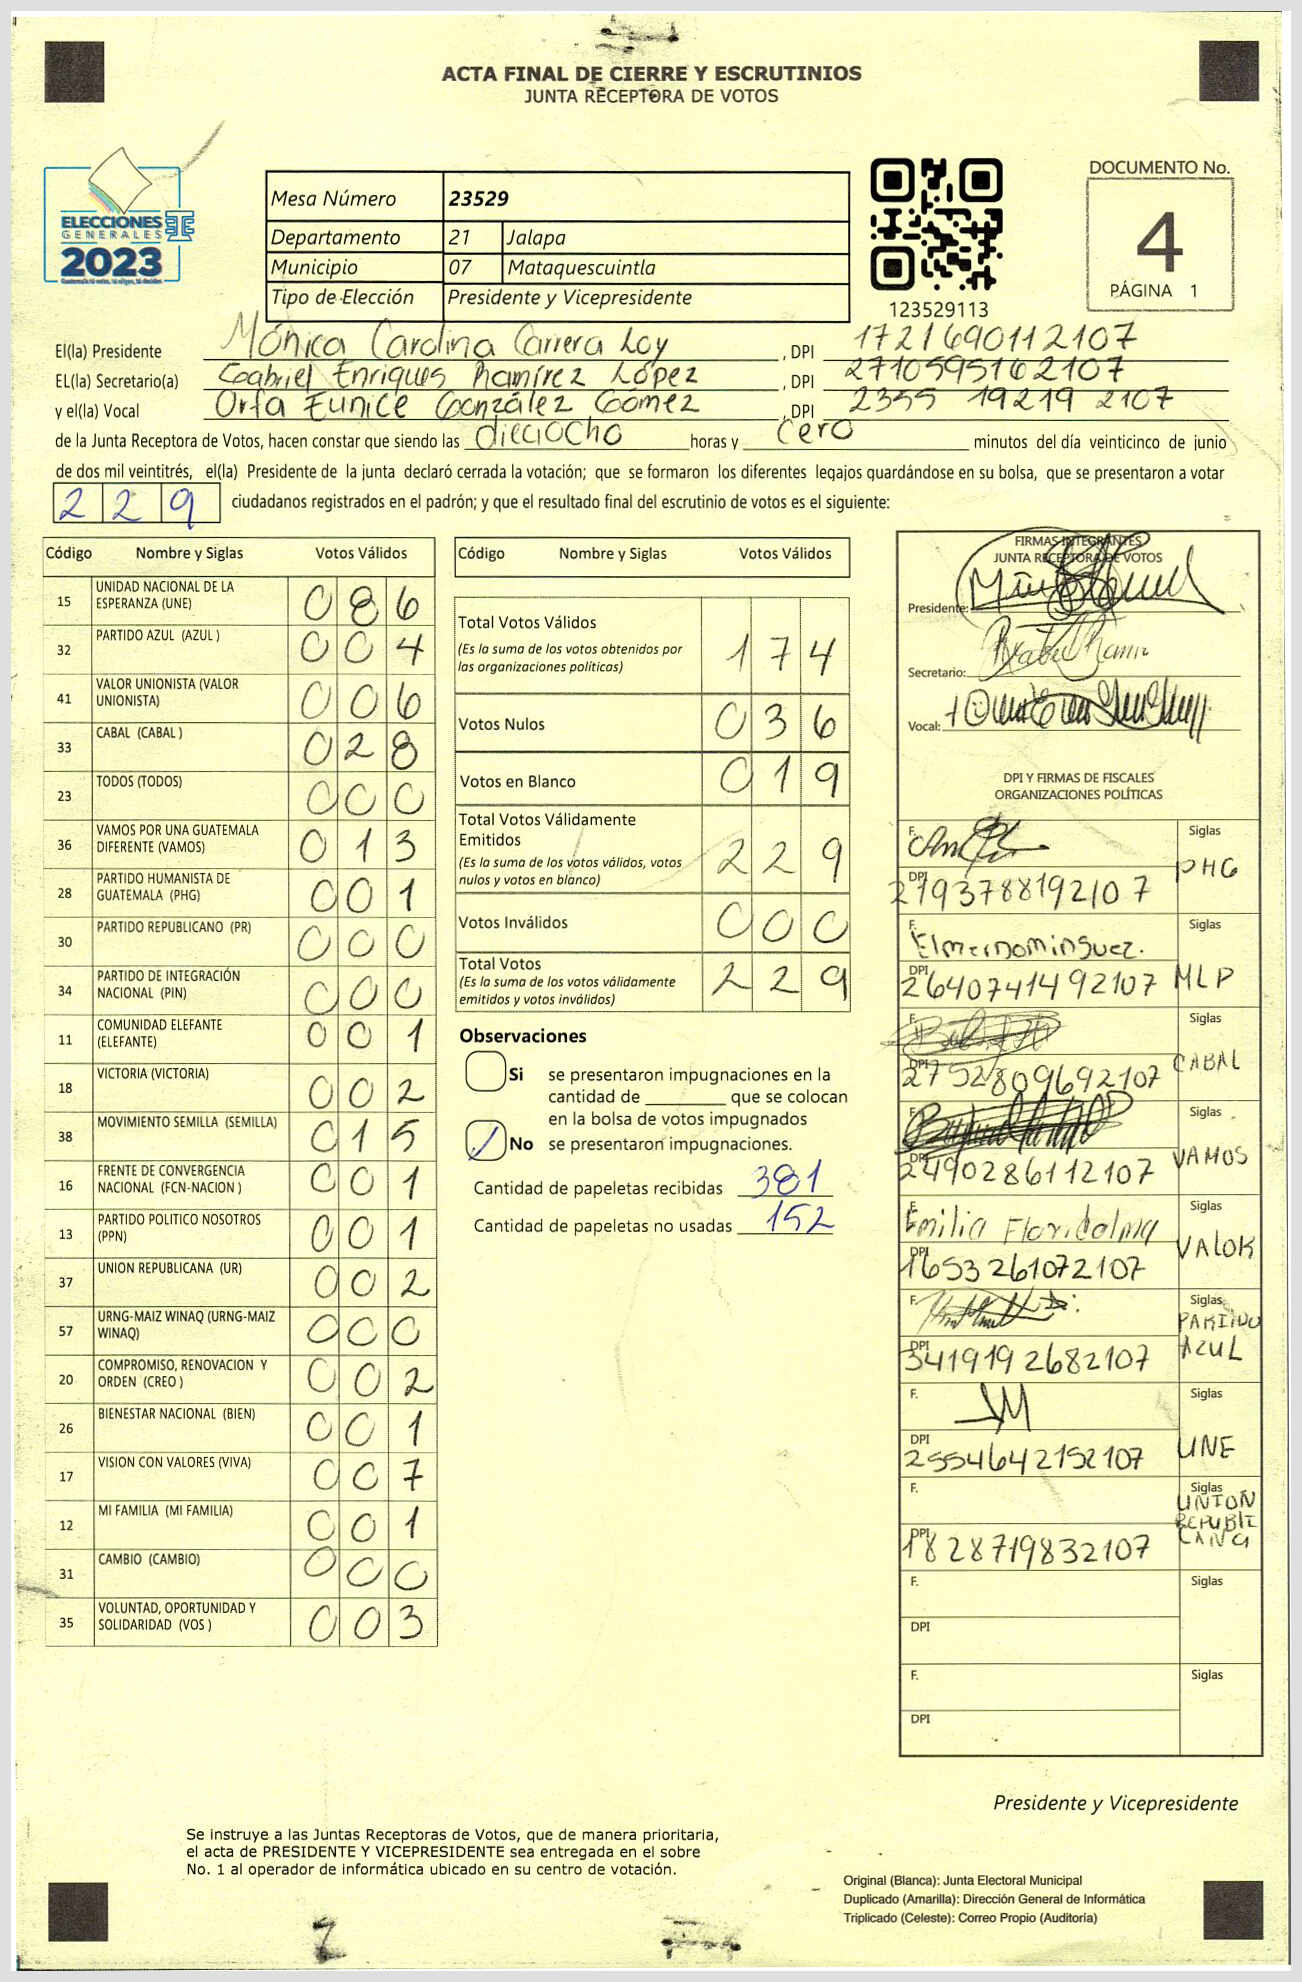 ACTA FINAL DE CIERRE Y ESCRUTINIOS
JUNTA RECEPTORA DE VOTOS
ELECCIONES
GENERALES
2023
Mesa Número 23529
Departamento 21 Jalapa
Municipio 07 Mataquescuintla
Tipo de Elección Presidente y Vicepresidente
123529113
DOCUMENTO No.
4
PÁGINA 1
El(la) Presidente Mónica Carolina Carrera Loy , DPI 1721690112107
EL(la) Secretario(a) Gabriel Enriques Ramírez López , DPI 2710595162107
y el(la) Vocal Orfa Eunice González Gómez , DPI 2355 19219 2107
de la Junta Receptora de Votos, hacen constar que siendo las dieciocho horas y cero minutos del día veinticinco de junio
de dos mil veintitrés, el(la) Presidente de la junta declaró cerrada la votación; que se formaron los diferentes legajos guardándose en su bolsa, que se presentaron a votar
229 ciudadanos registrados en el padrón; y que el resultado final del escrutinio de votos es el siguiente:
Código Nombre y Siglas Votos Válidos
15 UNIDAD NACIONAL DE LA
ESPERANZA (UNE) 086
32 PARTIDO AZUL (AZUL ) 004
41 VALOR UNIONISTA (VALOR
UNIONISTA) 006
33 CABAL (CABAL ) 028
23 TODOS (TODOS) 000
36 VAMOS POR UNA GUATEMALA
DIFERENTE (VAMOS) 013
28 PARTIDO HUMANISTA DE
GUATEMALA (PHG) 001
30 PARTIDO REPUBLICANO (PR) 000
34 PARTIDO DE INTEGRACIÓN
NACIONAL (PIN) 000
11 COMUNIDAD ELEFANTE
(ELEFANTE) 001
18 VICTORIA (VICTORIA) 002
38 MOVIMIENTO SEMILLA (SEMILLA) 015
16 FRENTE DE CONVERGENCIA
NACIONAL (FCN-NACION ) 001
13 PARTIDO POLITICO NOSOTROS
(PPN) 001
37 UNION REPUBLICANA (UR) 002
57 URNG-MAIZ WINAQ (URNG-MAIZ
WINAQ) 000
20 COMPROMISO, RENOVACION Y
ORDEN (CREO ) 002
26 BIENESTAR NACIONAL (BIEN) 001
17 VISION CON VALORES (VIVA) 007
12 MI FAMILIA (MI FAMILIA) 001
31 CAMBIO (CAMBIO) 000
35 VOLUNTAD, OPORTUNIDAD Y
SOLIDARIDAD (VOS ) 003
Código Nombre y Siglas Votos Válidos
Total Votos Válidos 174
(Es la suma de los votos obtenidos por
las organizaciones políticas)
Votos Nulos 036
Votos en Blanco 019
Total Votos Válidamente
Emitidos 229
(Es la suma de los votos válidos, votos
nulos y votos en blanco)
Votos Inválidos 000
Total Votos 229
(Es la suma de los votos válidamente
emitidos y votos inválidos)
Observaciones
Si se presentaron impugnaciones en la
cantidad de ________ que se colocan
en la bolsa de votos impugnados
No se presentaron impugnaciones.
Cantidad de papeletas recibidas 381
Cantidad de papeletas no usadas 152
FIRMAS INTEGRANTES
JUNTA RECEPTORA DE VOTOS
Presidente:
Secretario:
Vocal:
DPI Y FIRMAS DE FISCALES
ORGANIZACIONES POLÍTICAS
F. Siglas PHG
DPI 2793788192107
F. Elmer Dominguez. Siglas MLP
DPI 2640741492107
F. Siglas CABAL
DPI 2752809692107
F. Siglas VAMOS
DPI 2490286112107
F. Emilia Floridalma Siglas VALOR
DPI 1653261072107
F. Siglas PARTIDO
AZUL
DPI 3419192682107
F. Siglas UNE
DPI 2554642152107
F. Siglas UNION
REPUBLI
CANA
DPI 1828719832107
F. Siglas
DPI
F. Siglas
DPI
Presidente y Vicepresidente
Se instruye a las Juntas Receptoras de Votos, que de manera prioritaria,
el acta de PRESIDENTE Y VICEPRESIDENTE sea entregada en el sobre
No. 1 al operador de informática ubicado en su centro de votación.
Original (Blanca): Junta Electoral Municipal
Duplicado (Amarilla): Dirección General de Informática
Triplicado (Celeste): Correo Propio (Auditoría)